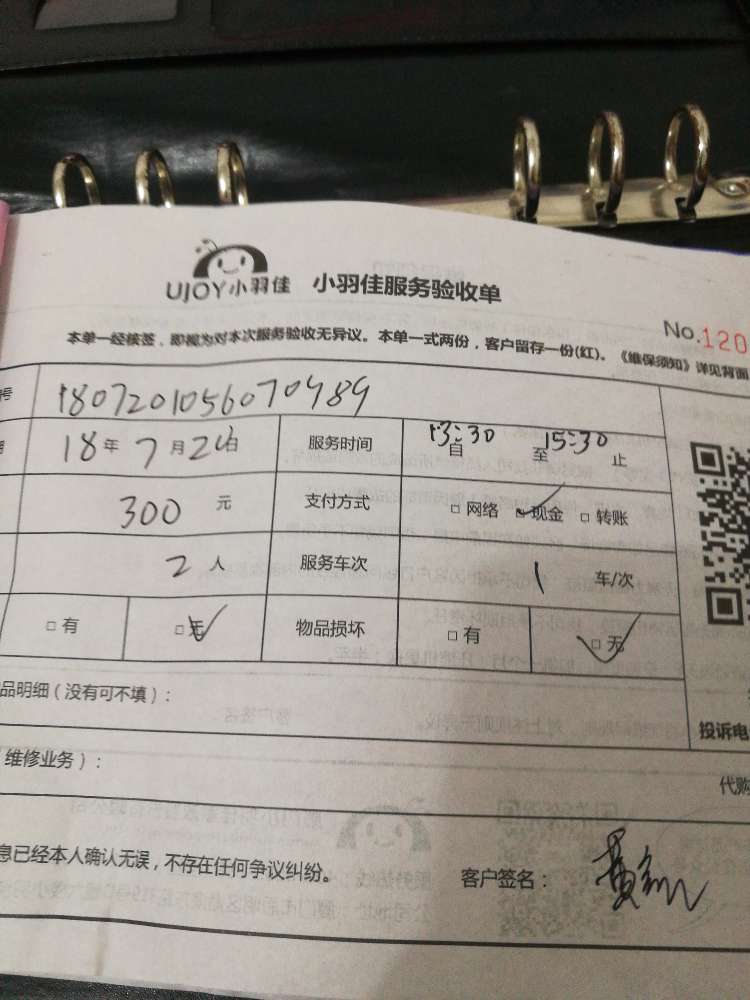 UJOY小羽佳 小羽佳服务验收单
No.120
本单一经核签，即视为对本次服务验收无异议。本单一式两份，客户留存一份(红)。《维保须知》详见背面
号 1807201056070489
18年7月2 日 服务时间 13:30自 至15:30止
300元 支付方式 □网络 现金 □转账
2人 服务车次 1车/次
□有 □无 物品损坏 □有 □无
品明细（没有可不填）：
投诉电
维修业务）：
代购
息已经本人确认无误，不存在任何争议纠纷。 客户签名：黄